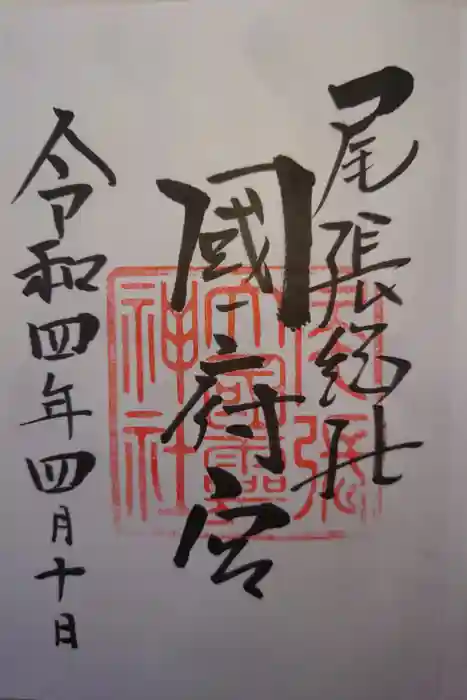 尾張総社
國府宮
令和四年四月十日
尾張
大國霊
神社